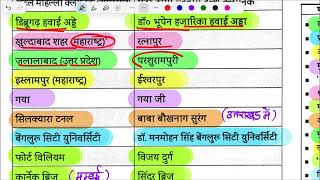 डिब्रूगढ़ हवाई अड्डे डॉ० भूपेन हजारिका हवाई अड्डा
खुल्दाबाद शहर (महाराष्ट्र) रत्नापुर
जलालाबाद (उत्तर प्रदेश) परशुरामपुरी
इस्लामपुर (महाराष्ट्र) ईश्वरपुर
गया गया जी
सिलक्यारा टनल बाबा बौखनाग सुरंग (उत्तराखंड में)
बेंगलुरू सिटी यूनिवर्सिटी डॉ. मनमोहन सिंह बेंगलुरू सिटी यूनिवर्सिटी
फोर्ट विलियम विजय दुर्ग
कार्नक ब्रिज (मुम्बई) सिंदूर ब्रिज